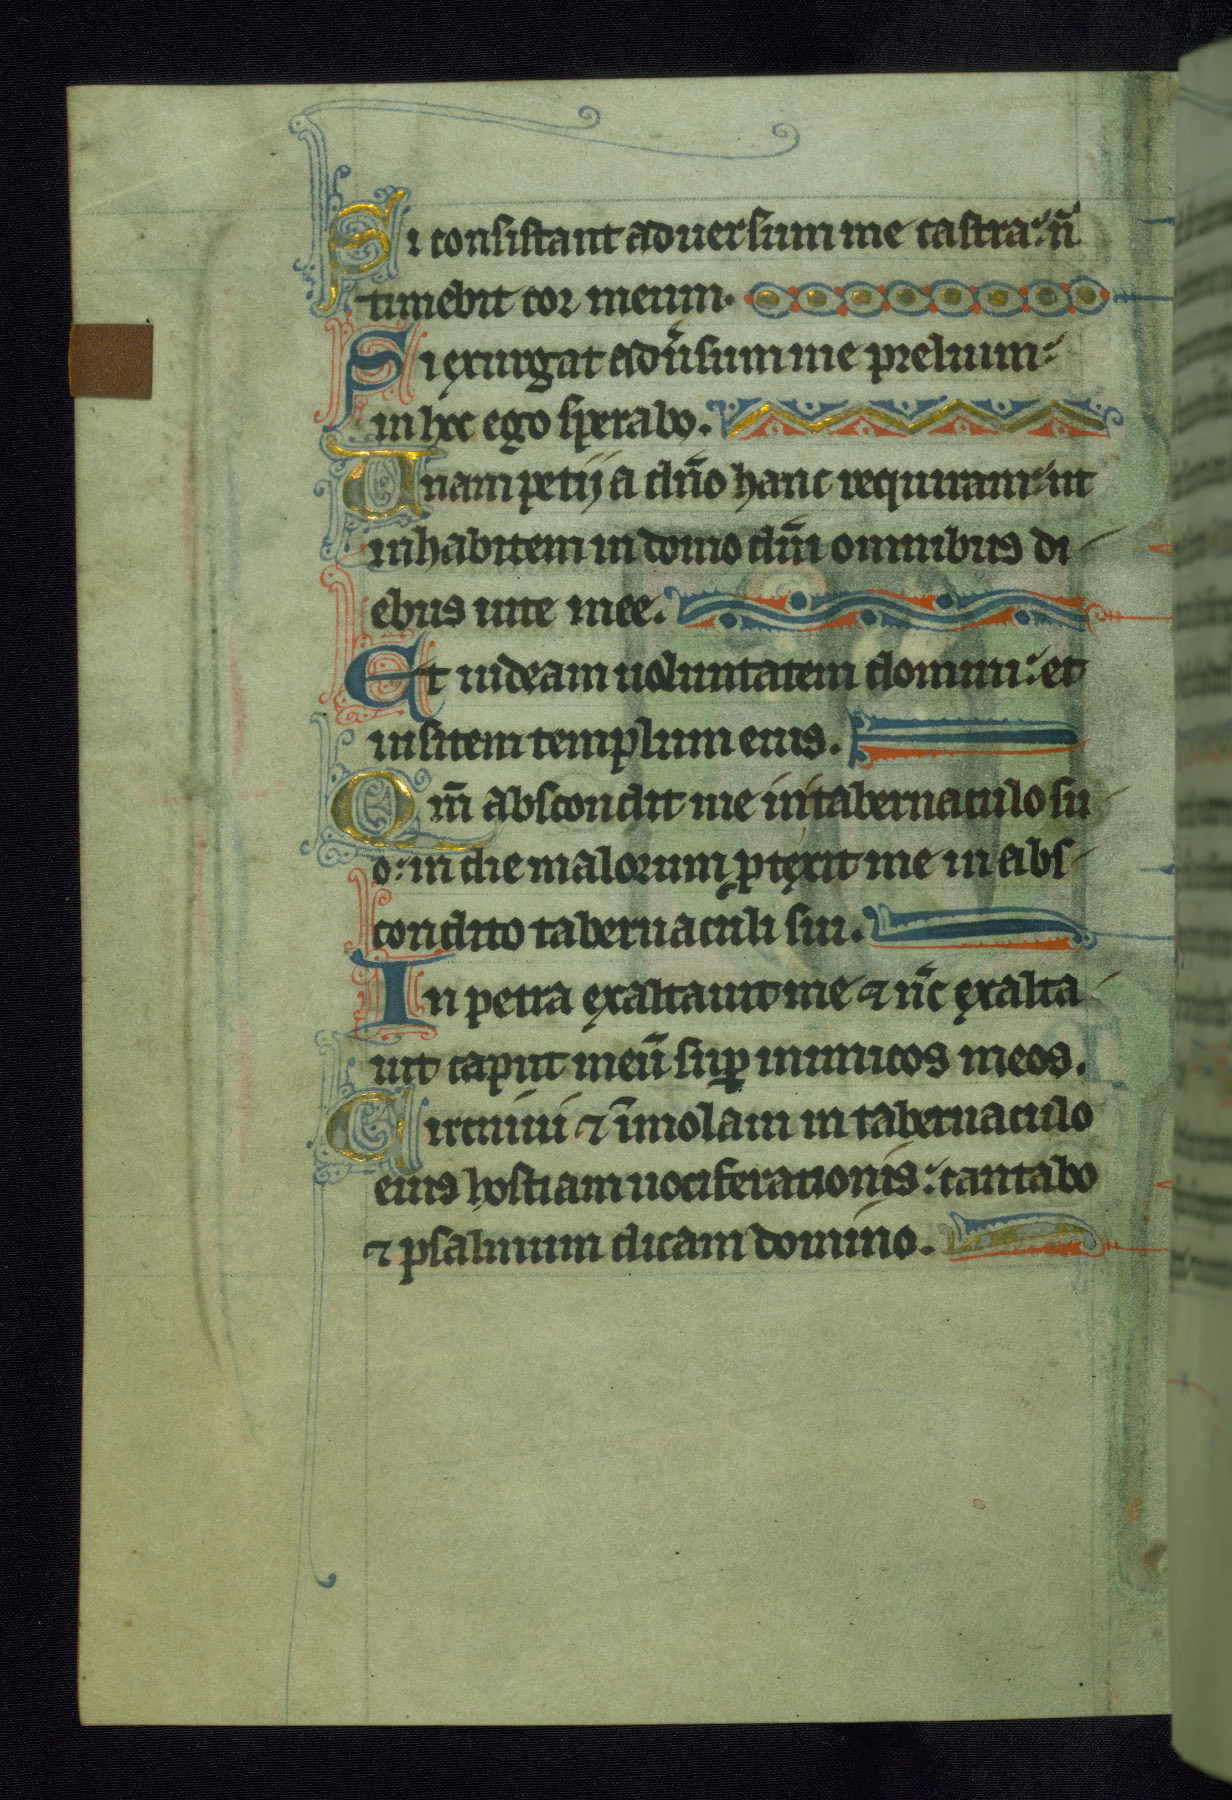 Si consistant aduersum me castra: n̄
timebit cor meum.
Si exurgat adu̾sum me prelium:
in hoc ego sperabo.
Unam petij a dn̄o hanc requiram: ut
inhabitem in domo dn̄i omnibus di
ebus uite mee.
Et uideam uoluntatem domini: et
uisitem templum eius.
Qm̄ abscondit me in tabernaculo su
o: in die malorum ꝓtexit me in abs
condito tabernaculi sui.
In petra exaltauit me ⁊ nc̄ exalta
uit caput meū suꝑ inimicos meos.
Circuiui ⁊ īmolaui in tabernaculo
eius hostiam uociferationis: cantabo
⁊ psalmum dicam domino.